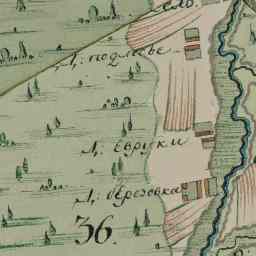 ело.
Д. подлѣсье.
Д. Евруки
Д. Березовка
36.